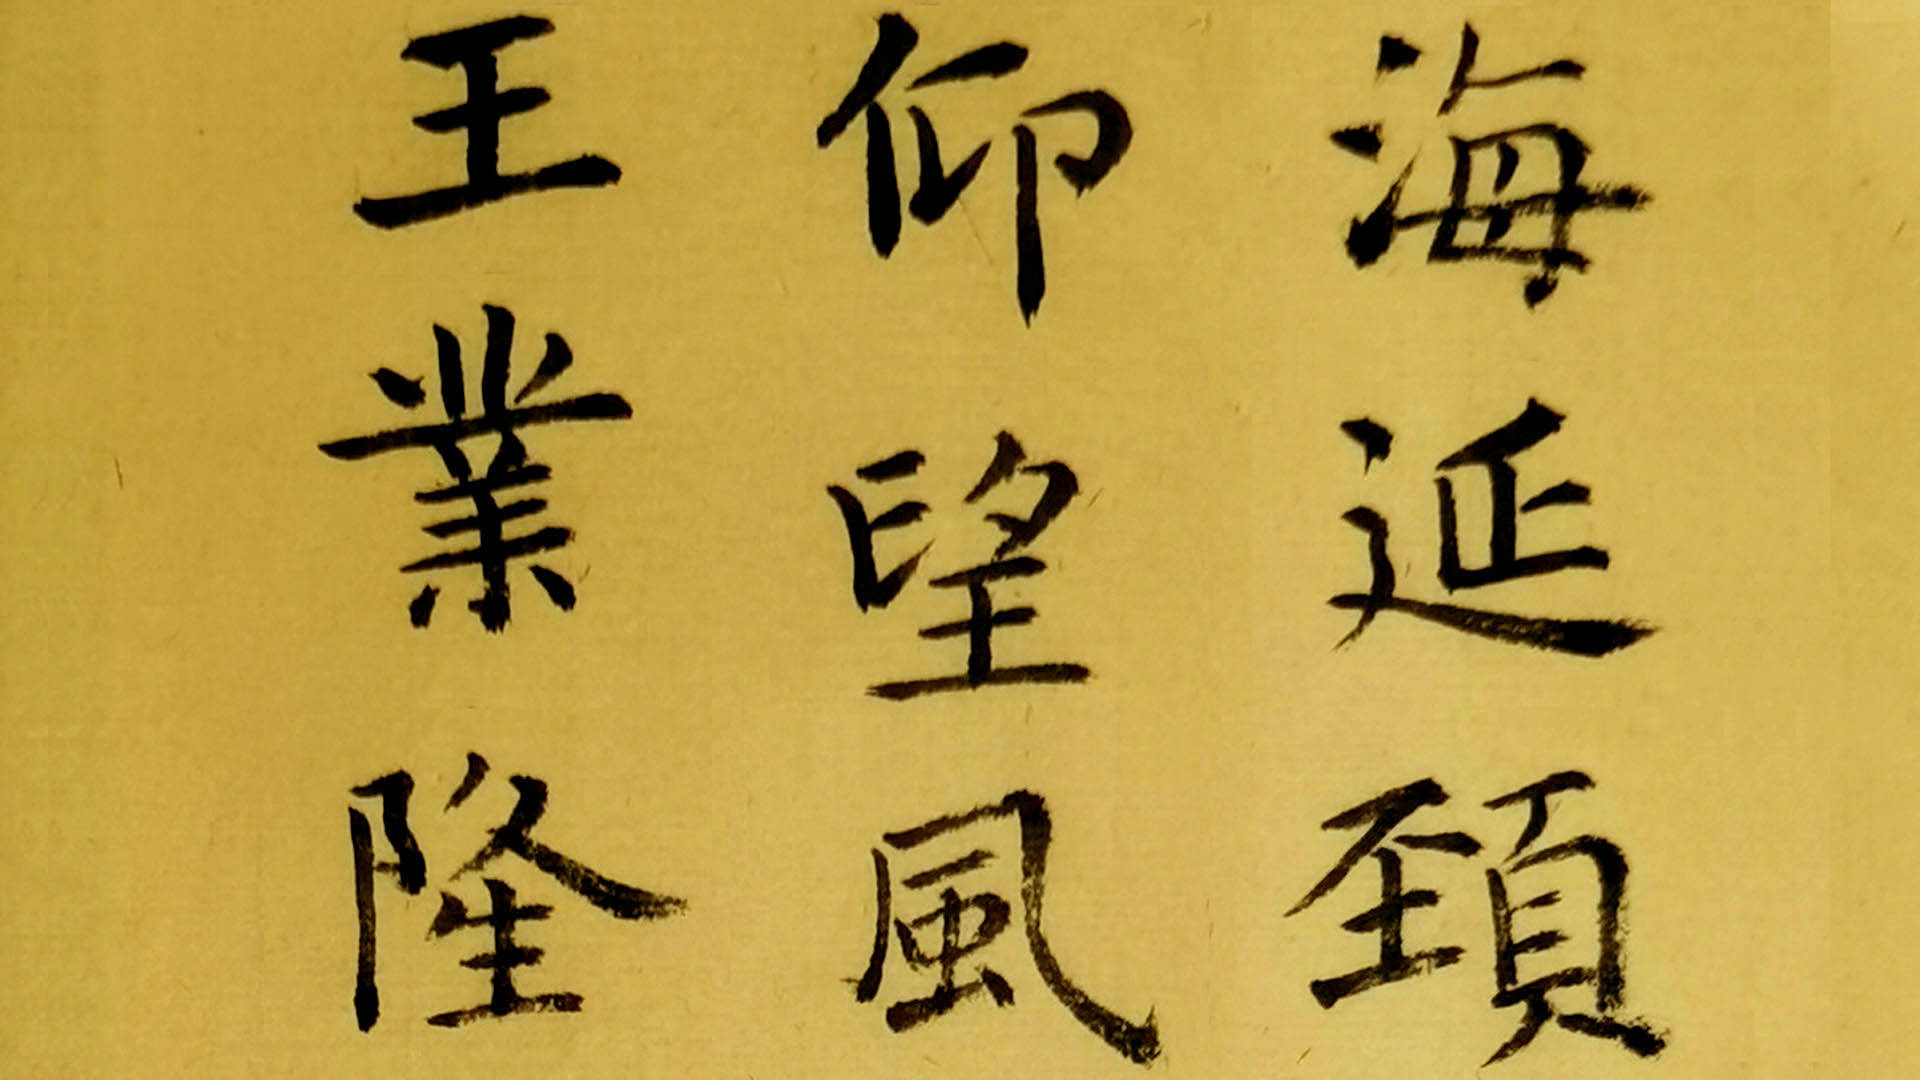 海延頸
仰望風
王業隆